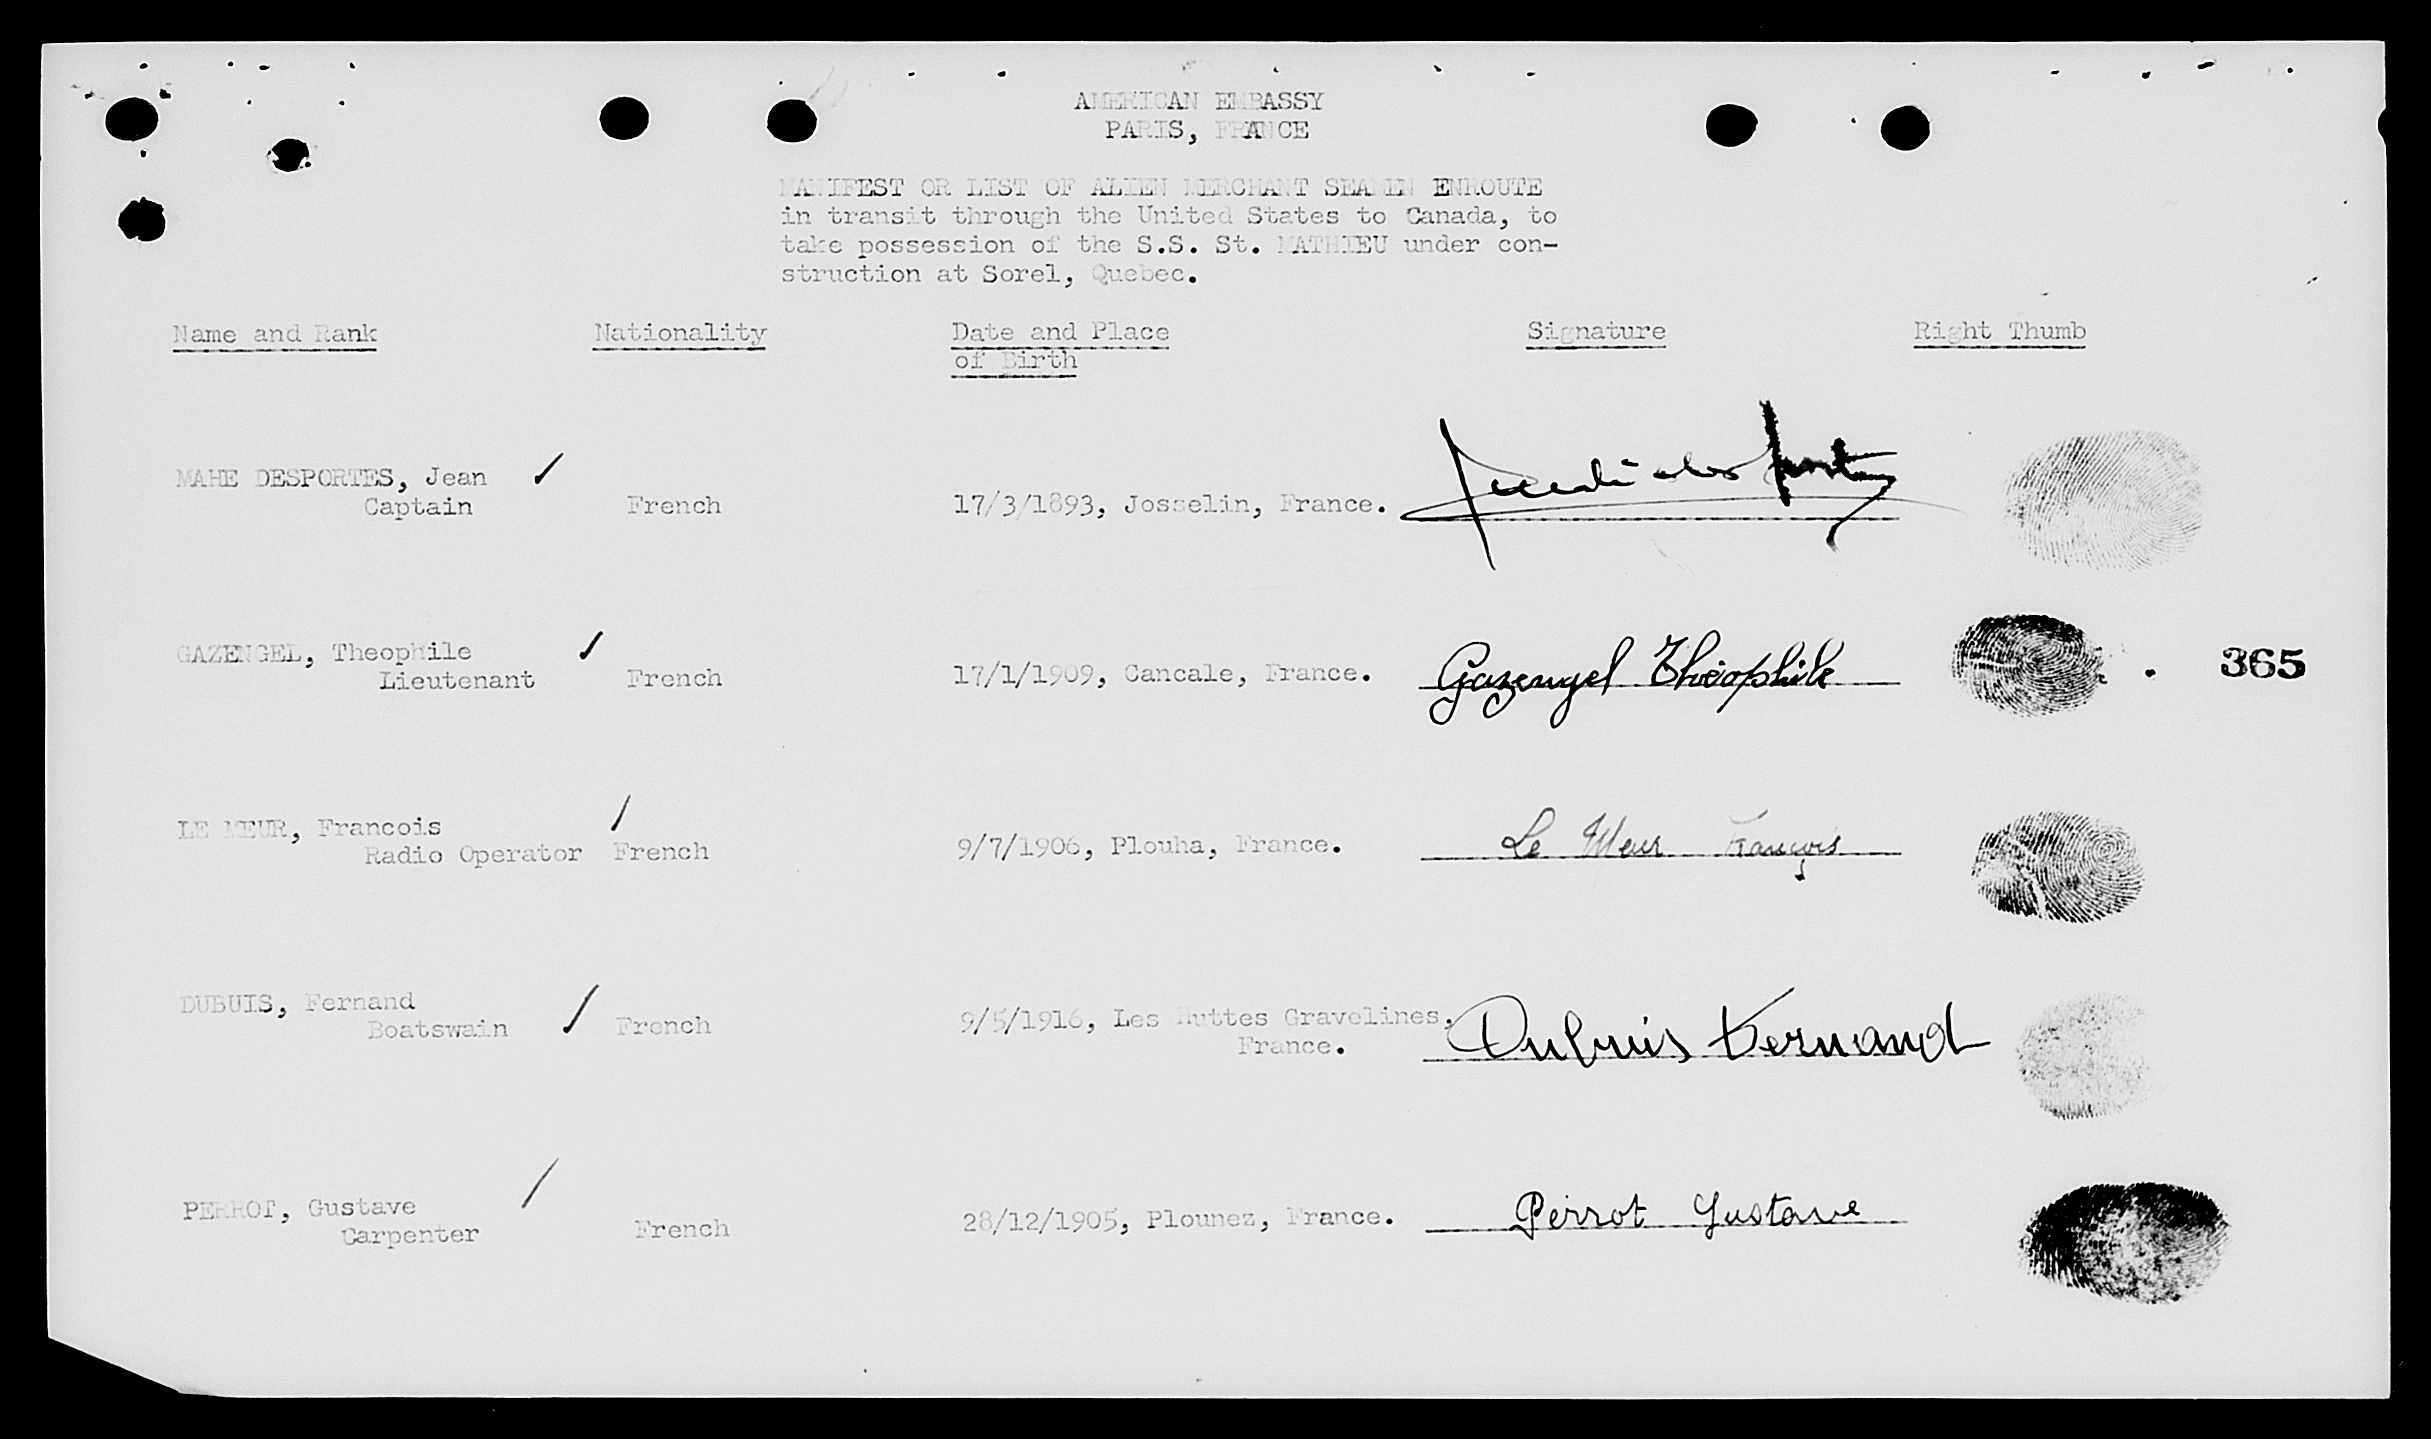 AMERICAN EMBASSY
PARIS, FRANCE
MANIFEST OR LIST OF ALIEN MERCHANT SEAMEN ENROUTE
in transit through the United States to Canada, to
take possession of the S.S. St. MATHIEU under con-
struction at Sorel, Quebec.
Name and Rank Nationality Date and Place Signature Right Thumb
of Birth
MAHE DESPORTES, Jean
Captain French 17/3/1893, Josselin, France.
GAZENGEL, Theophile
Lieutenant French 17/1/1909, Cancale, France. Gazengel Théophile 365
LE MEUR, Francois
Radio Operator French 9/7/1906, Plouha, France. Le Meur François
DUBUIS, Fernand
Boatswain French 9/5/1916, Les Huttes Gravelines, Dubuis Fernand
France.
PERROT, Gustave
Carpenter French 28/12/1905, Plounez, France. Perrot Gustave